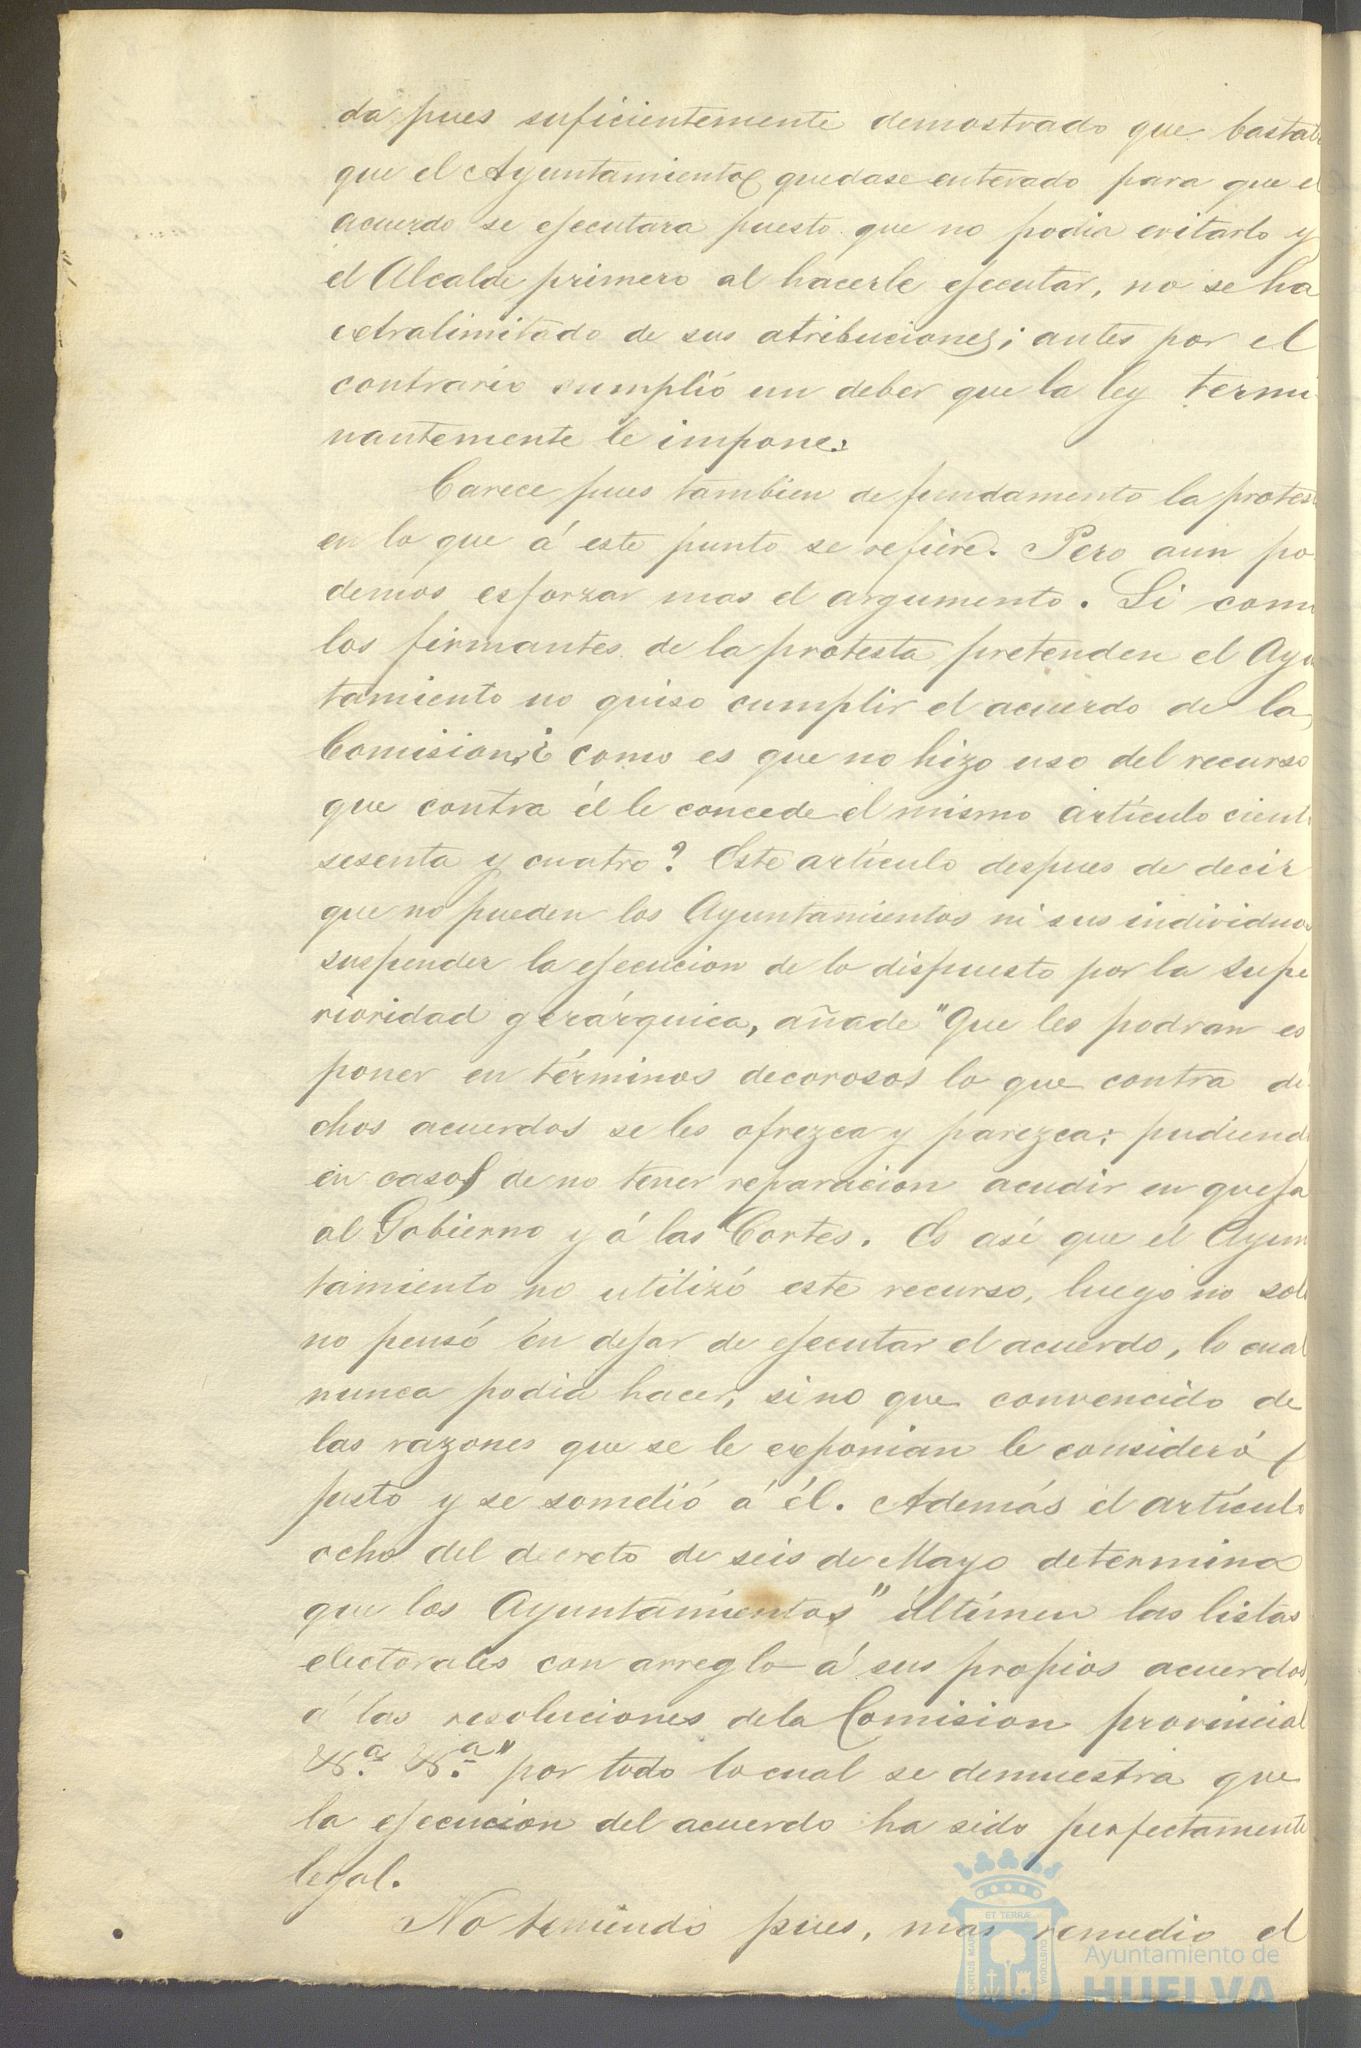 da pues suficientemente demostrado que bastab
que el Ayuntamiento quedase enterado para que el
acuerdo se ejecutara puesto que no podia evitarlo y
el Alcalde primero al hacerle ejecutar, no se ha
extralimitado de sus atribuciones; antes por el
contrario cumplió un deber que la ley termi
nantemente le impone.
Carece pues tambien de fundamento la protes
en lo que á este punto se refiere. Pero aun po
demos esforzar mas el argumento. Si como
los firmantes de la protesta pretenden el Ayu
tamiento no quiso cumplir el acuerdo de la
Comision ¿como es que no hizo uso del recurso
que contra él le concede el mismo artículo cient
sesenta y cuatro? Este artículo despues de decir
que no pueden los Ayuntamientos ni sus individuos
suspender la ejecucion de lo dispuesto por la supe
rioridad gerárquica, añade "Que les podran es
poner en términos decorosos lo que contra di
chos acuerdos se les ofrezca y parezca; pudiend
en caso de no tener reparacion acudir en queja
al Gobierno y á las Cortes. Es así que el Ayun
tamiento no utilizó este recurso, luego no sol
no pensó en dejar de ejecutar el acuerdo, lo cual
nunca podia hacer, sino que convencido de
las razones que se le exponian le consideró
justo y se sometió á él. Además el artícul
ocho del decreto de seis de Mayo determina
que los Ayuntamientos "últimen las listas
electorales con arreglo á sus propios acuerdos,
á las resoluciones de la Comision provincial
&ª. &ª." por todo lo cual se demuestra que
la ejecucion del acuerdo ha sido perfectamente
legal.
No teniendo pues, mas remedio el
ET TERRAE
PORTUS MARIS
CUSTODIA
Ayuntamiento de
HUELVA